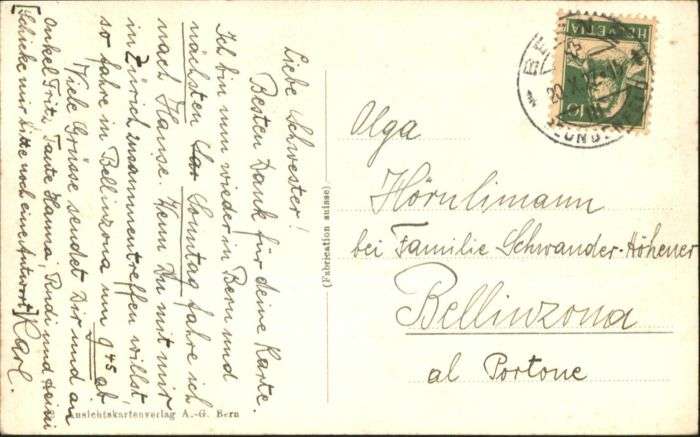 Liebe Schwester!
Besten Dank für deine Karte.
Ich bin nun wieder in Bern und
nächsten Sonntag fahre ich
nach Hause. Wenn Du mit mir
in Zürich zusammentreffen willst,
so fahre in Bellinzona um 9 45 ab
Viele Grüsse sendet Dir und an
Onkel Fritz, Tante Hanna, Ruedi und Heini
Karl.
[Schicke mir bitte noch eine Antwort]
Ansichtskartenverlag A.-G. Bern
(Fabrication suisse)
HELVETIA
10
Olga
Hörnlimann
bei Familie Schwander-Höhener
Bellinzona
al Portone